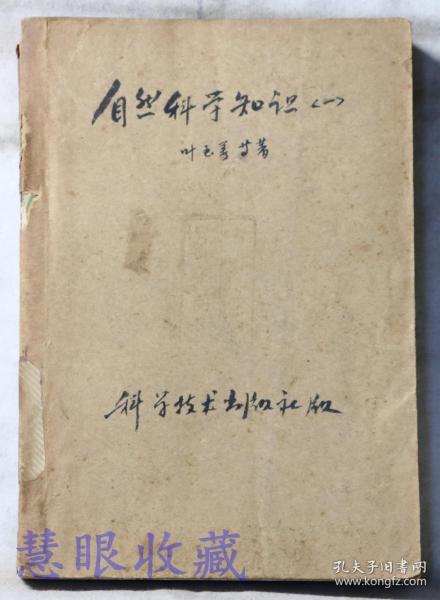 自然科学知识（一）
叶玉善等著
科学技术出版社版
慧眼收藏
孔夫子旧书网
www.kongfz.com